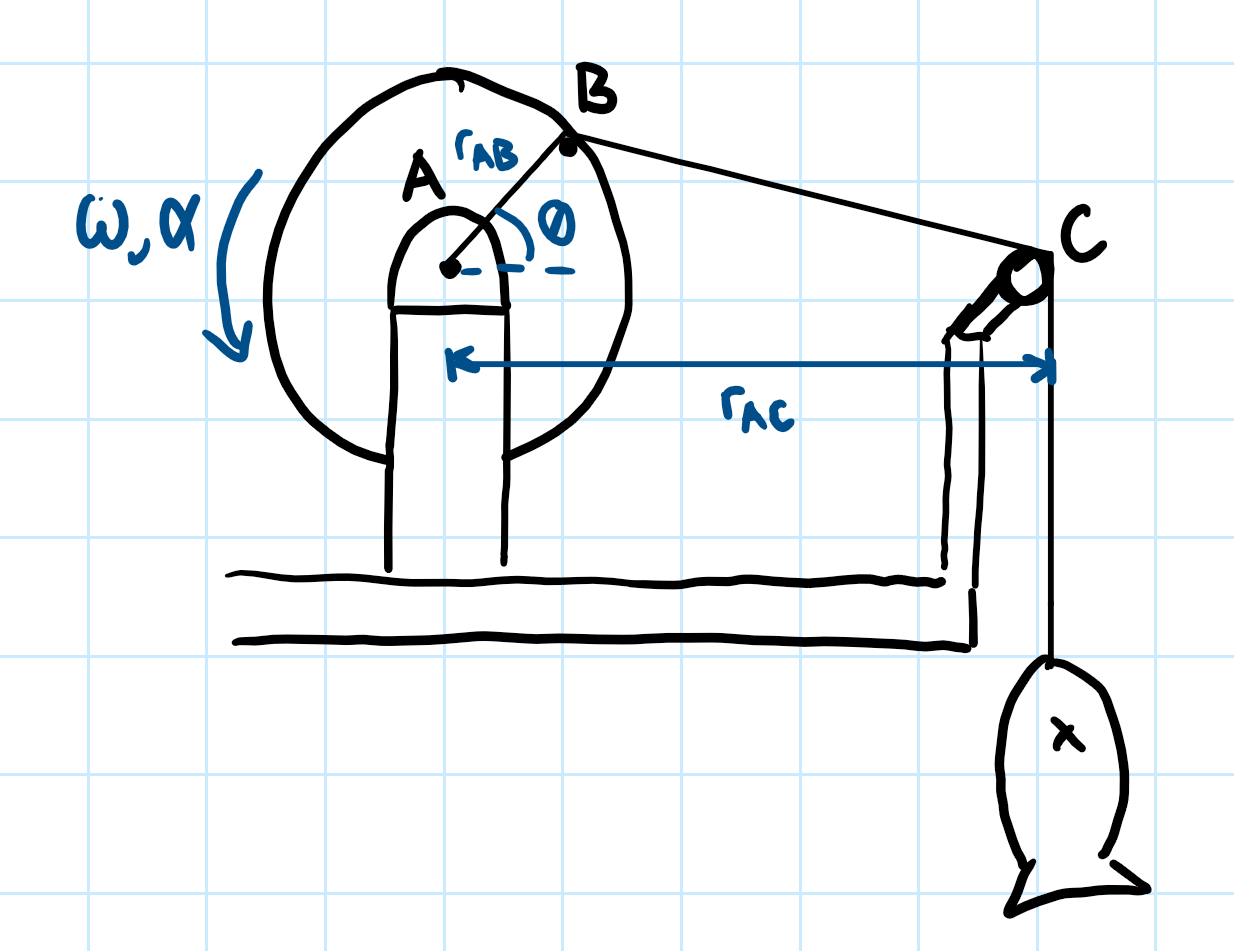 B
r_AB
A
ω, α
θ
C
r_AC
x